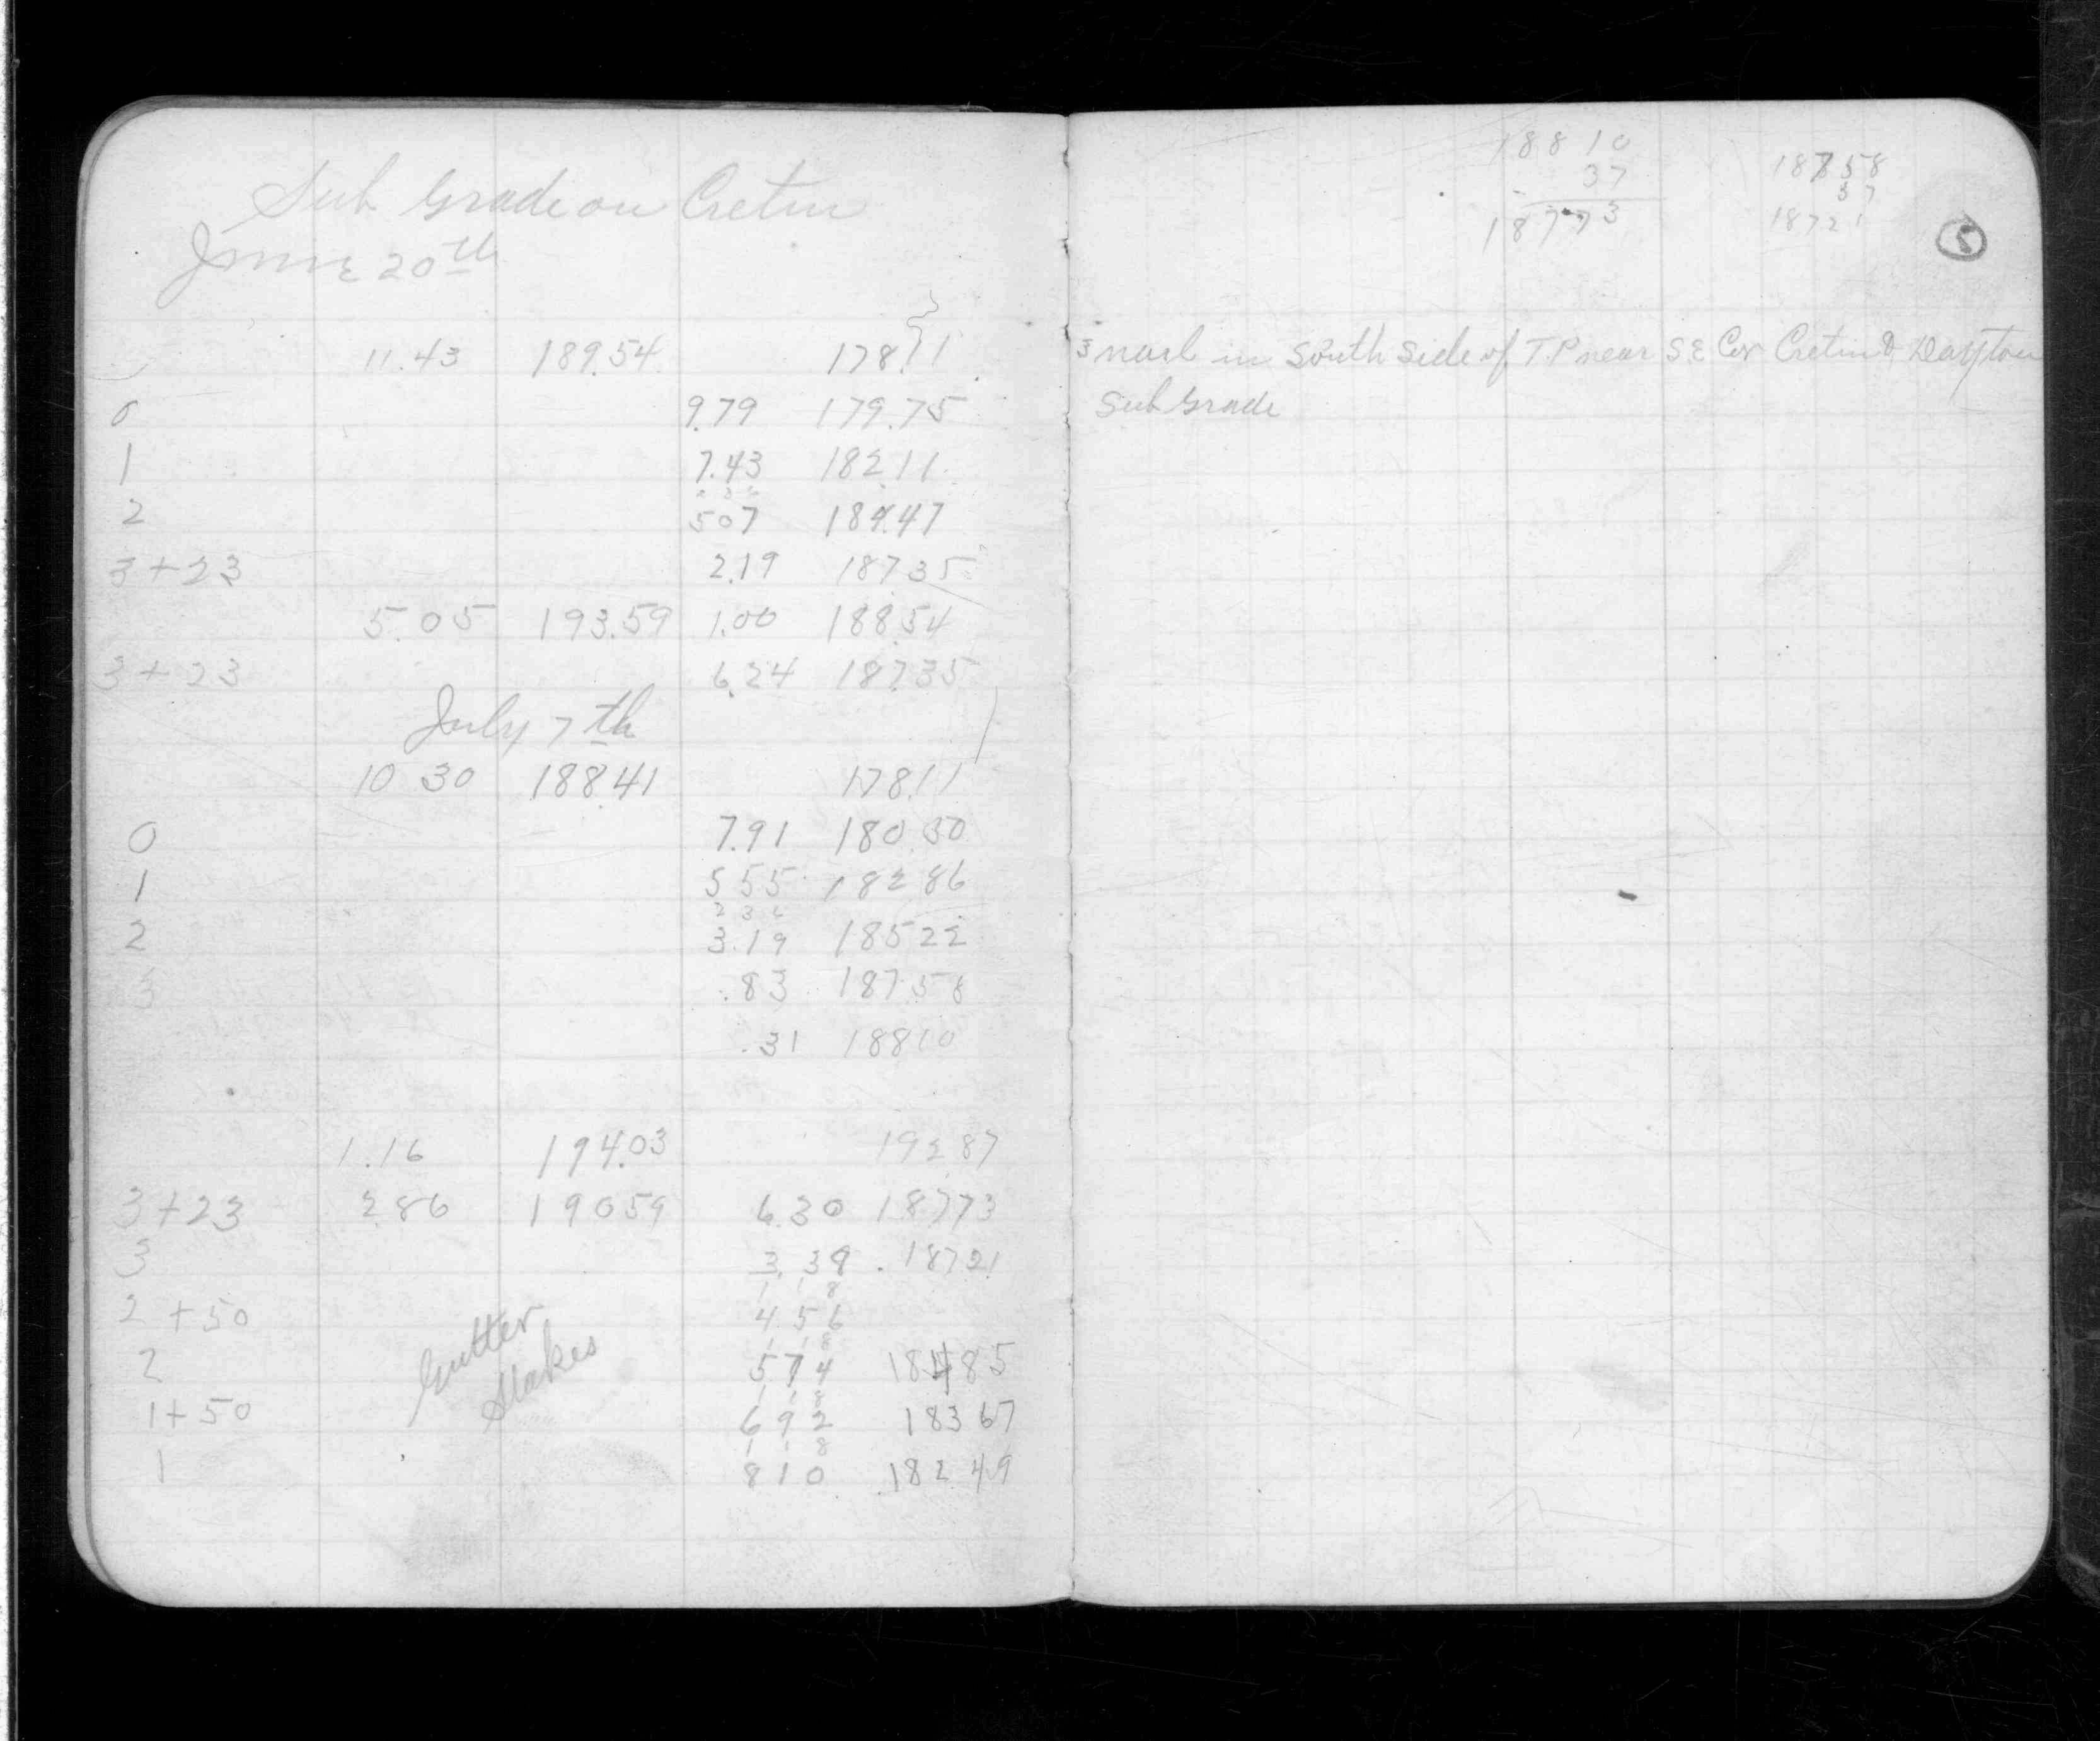 Sub Grade on Cretin
June 20th
11.43 189.54 178.11
0 9.79 179.75
1 7.43 182.11
2 3 6
2 507 184.47
3+23 2.19 187.35
5.05 193.59 1.00 188.54
3+23 6.24 187.35
July 7th
10 30 188.41 178.11
0 7.91 180.50
1 5 55 182 86
2 3 6
2 3.19 185 22
3 .83 187.58
.31 188 10
1.16 194.03 192 87
3+23 2.86 190 59 6.30 187 73
3 3.38 187 21
1 1 8
2 +50 4 56
1 1 8
2 5 74 184 85
1 1 8
1+50 6 92 183 67
1 1 8
1 8 10 182 49
Gutter
Stakes
188 10
37
187 73
187 58
37
187 21
5
3 nail in South Side of T.P near S.E Cor Cretin & Dayton
Sub Grade